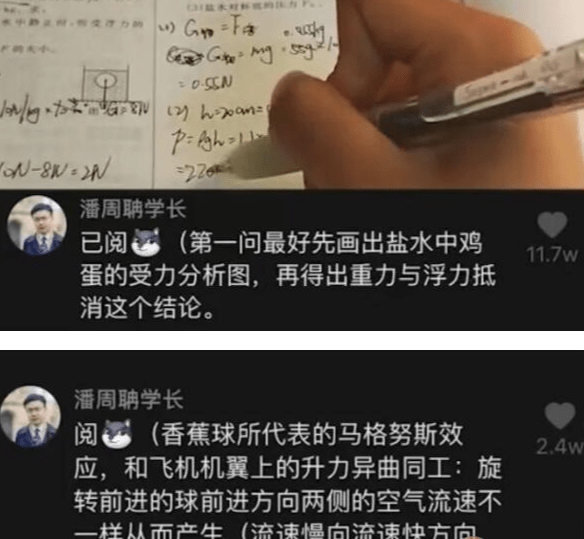 (3)盐水对杯底的压力F。
水中静止时,所受浮力的
F的大小。
(1) G物 = F浮
G物 = mg = 55g×
= 0.55N
(2) h=20cm=
P=ρgh=1.1×
0N-8N=2N
潘周聃学长
已阅 (第一问最好先画出盐水中鸡
蛋的受力分析图,再得出重力与浮力抵
消这个结论。
11.7w
潘周聃学长
阅 (香蕉球所代表的马格努斯效
应,和飞机机翼上的升力异曲同工:旋
转前进的球前进方向两侧的空气流速不
一样从而产生(流速慢向流速快方向
2.4w